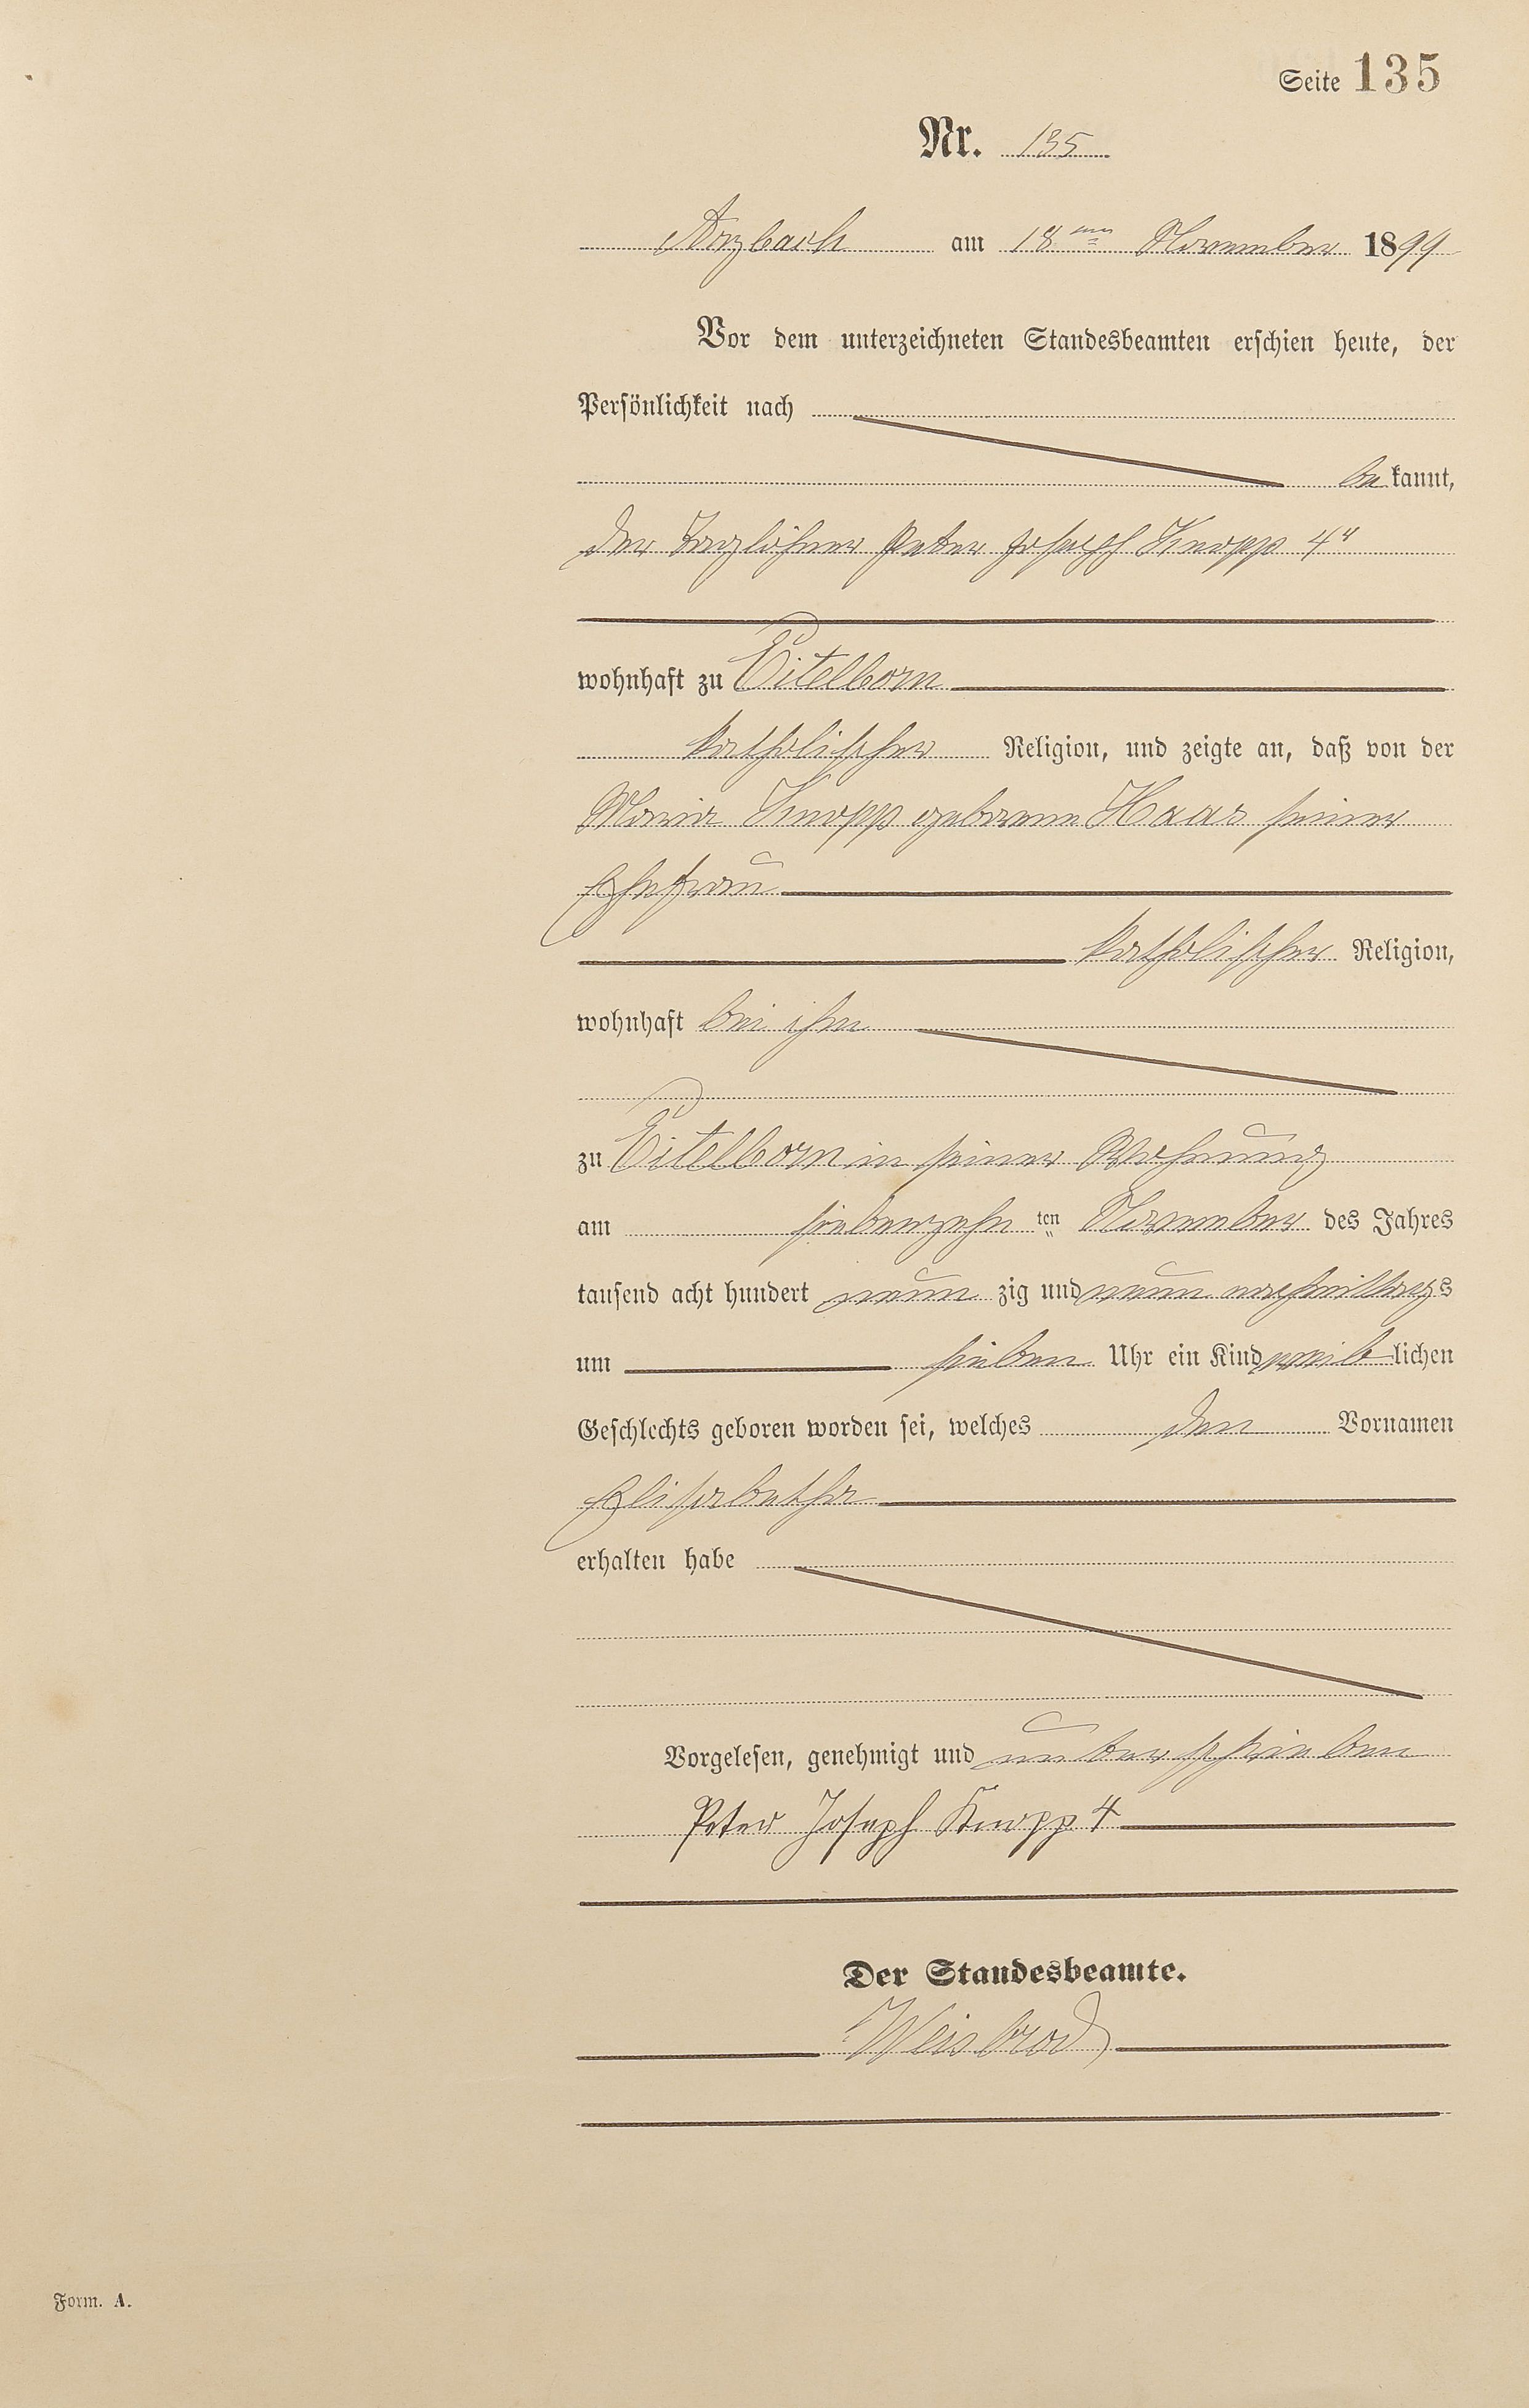 Seite 135
Nr. 135
Arzbach am 18ten November 1899
Vor dem unterzeichneten Standesbeamten erschien heute, der
Persönlichkeit nach
bekannt,
der Taglöhner Peter Joseph Knopp 4r
wohnhaft zu Eitelborn
katholischer Religion, und zeigte an, daß von der
Maria Knopp geborene Haas seiner
Ehefrau
katholischer Religion,
wohnhaft bei ihm
zu Eitelborn in seiner Wohnung
am siebenzehn ten November des Jahres
tausend acht hundert neun zig und neun nachmittags
um sieben Uhr ein Kind weiblichen
Geschlechts geboren worden sei, welches den Vornamen
Elisabetha
erhalten habe
Vorgelesen, genehmigt und unterschrieben
Peter Joseph Knopp 4
Der Standesbeamte.
Weisbrod
Form. A.